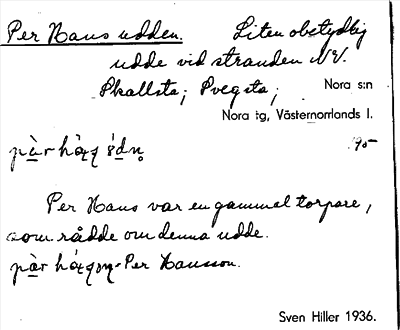 Per Hans udden. Liten obetydlig
udde vid stranden NV.
Skallsta; Svegsta;
Nora s:n
Nora tg, Västernorrlands l.
Per Hans var en gammal torpare,
som rådde om denna udde.
Per Hansson.
Sven Hiller 1936.